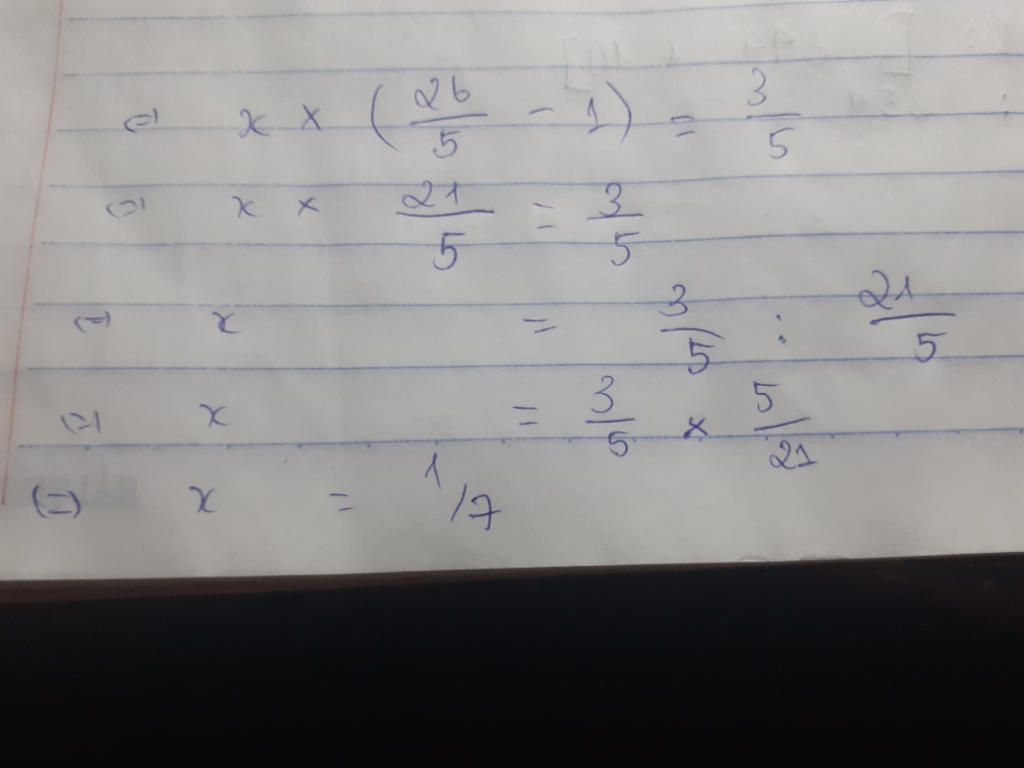 ⇔ x × (26/5 - 1) = 3/5
⇔ x × 21/5 = 3/5
⇔ x = 3/5 : 21/5
⇔ x = 3/5 × 5/21
⇔ x = 1/7